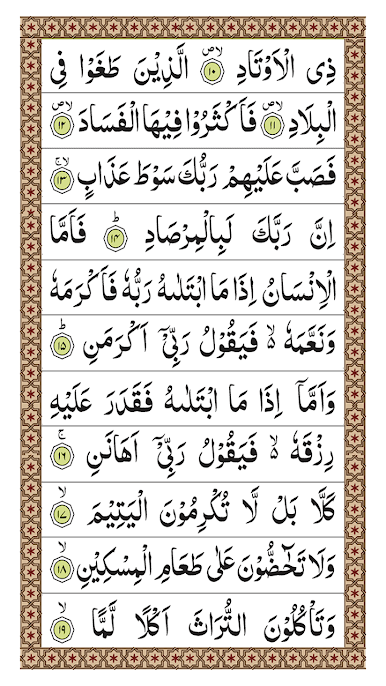 ذِی الْاَوْتَادِ ۪ۙۙ ۱۰ الَّذِیْنَ طَغَوْا فِی
الْبِلَادِ ۪ۙۙ ۱۱ فَاَكْثَرُوْا فِیْهَا الْفَسَادَ ۪ۙۙ ۱۲
فَصَبَّ عَلَیْهِمْ رَبُّكَ سَوْطَ عَذَابٍ ۚۙ ۱۳
اِنَّ رَبَّكَ لَبِالْمِرْصَادِ ؕ ۱۴ فَاَمَّا
الْاِنْسَانُ اِذَا مَا ابْتَلٰىهُ رَبُّهٗ فَاَكْرَمَهٗ
وَنَعَّمَهٗ ۙ۬ فَیَقُوْلُ رَبِّیْۤ اَكْرَمَنِ ؕ ۱۵
وَاَمَّاۤ اِذَا مَا ابْتَلٰىهُ فَقَدَرَ عَلَیْهِ
رِزْقَهٗ ۙ۬ فَیَقُوْلُ رَبِّیْۤ اَهَانَنِ ۚ ۱۶
كَلَّا بَلْ لَّا تُكْرِمُوْنَ الْیَتِیْمَ ۙ ۱۷
وَلَا تَحٰٓضُّوْنَ عَلٰی طَعَامِ الْمِسْكِیْنِ ۙ ۱۸
وَتَاْكُلُوْنَ التُّرَاثَ اَكْلًا لَّمًّا ۙ ۱۹